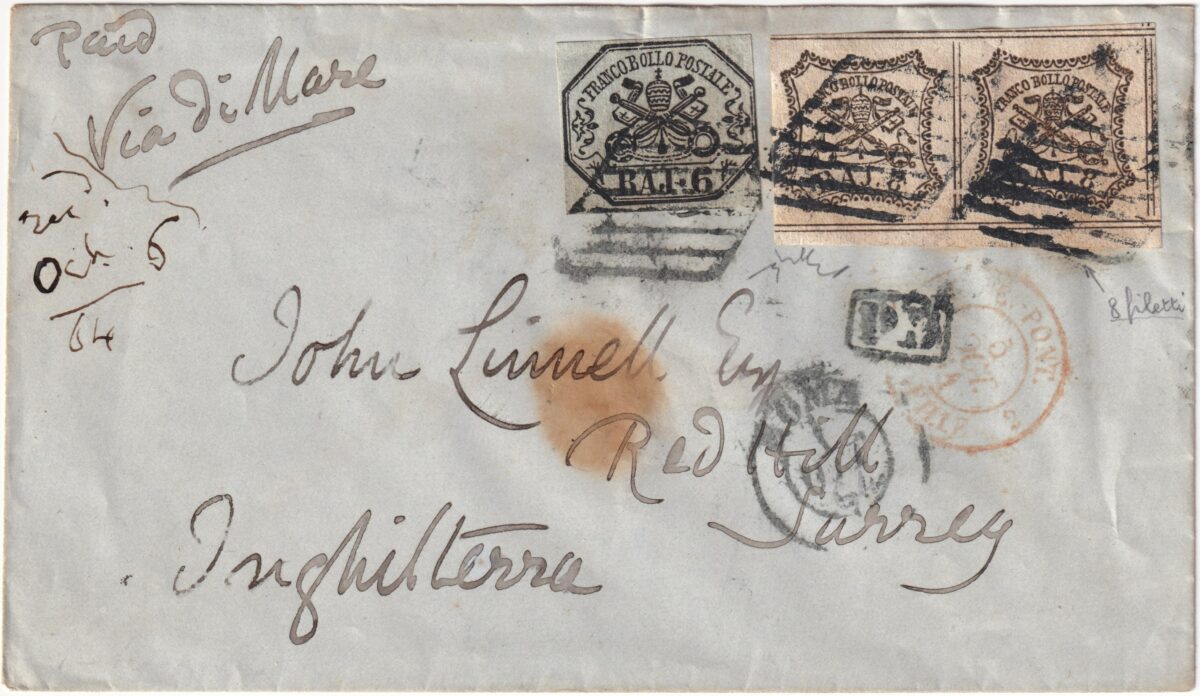 Paid
Via Di Mare
Oct. 6
64
FRANCO BOLLO POSTALE
BAJ: 6
FRANCO BOLLO POSTALE
BAJ 8
FRANCO BOLLO POSTALE
BAJ 8
8 filetti
PD
PONT.
5
OCT.
2
ROMA
John Linnell Esq
Red Hill
Surrey
Inghilterra